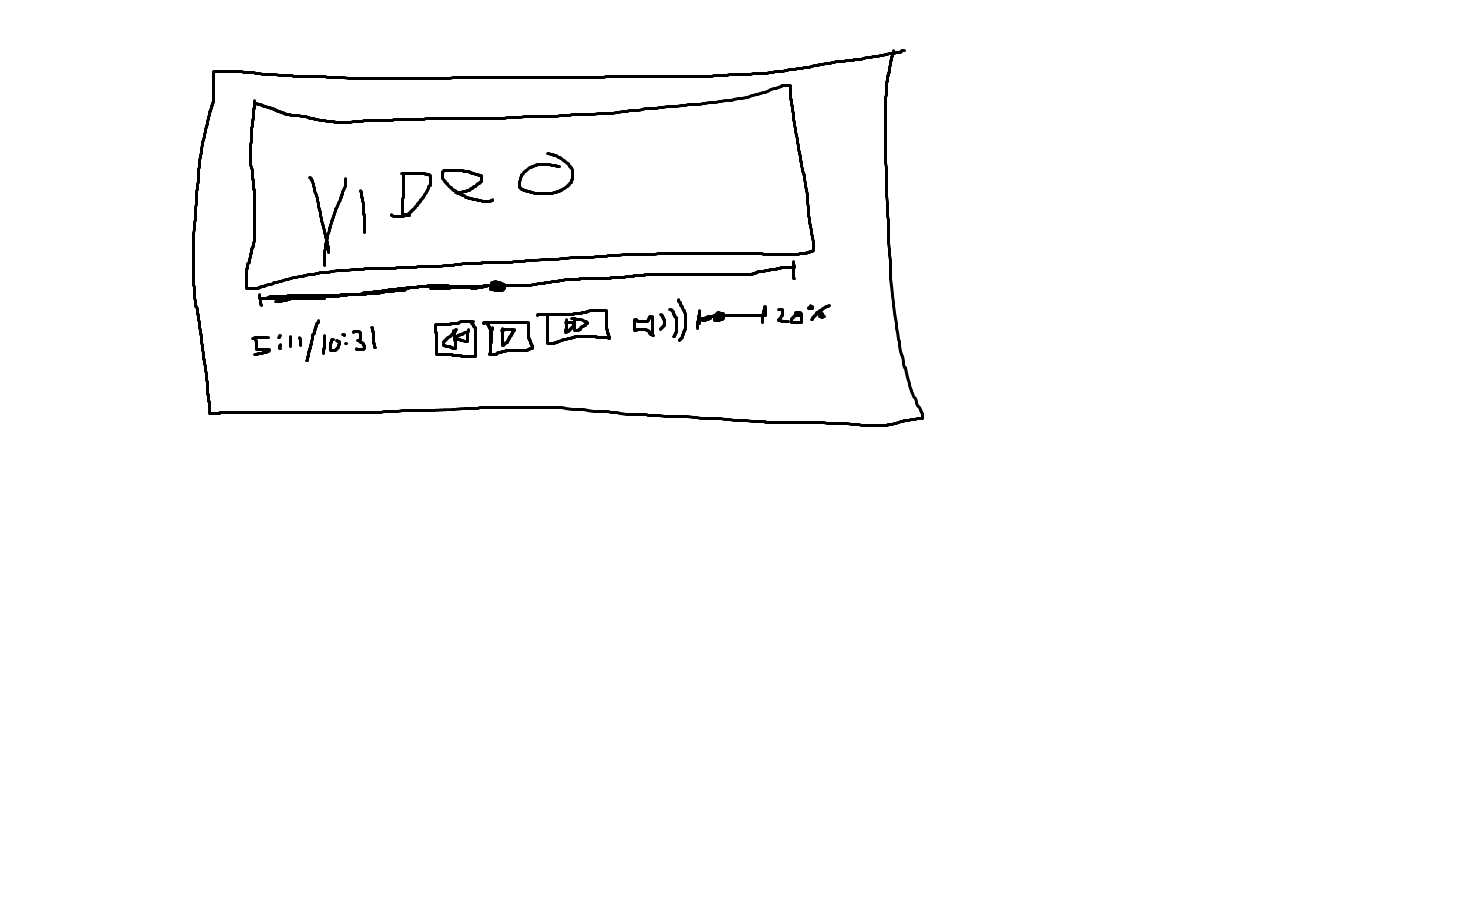 VIDEO
5:11/10:31
20%